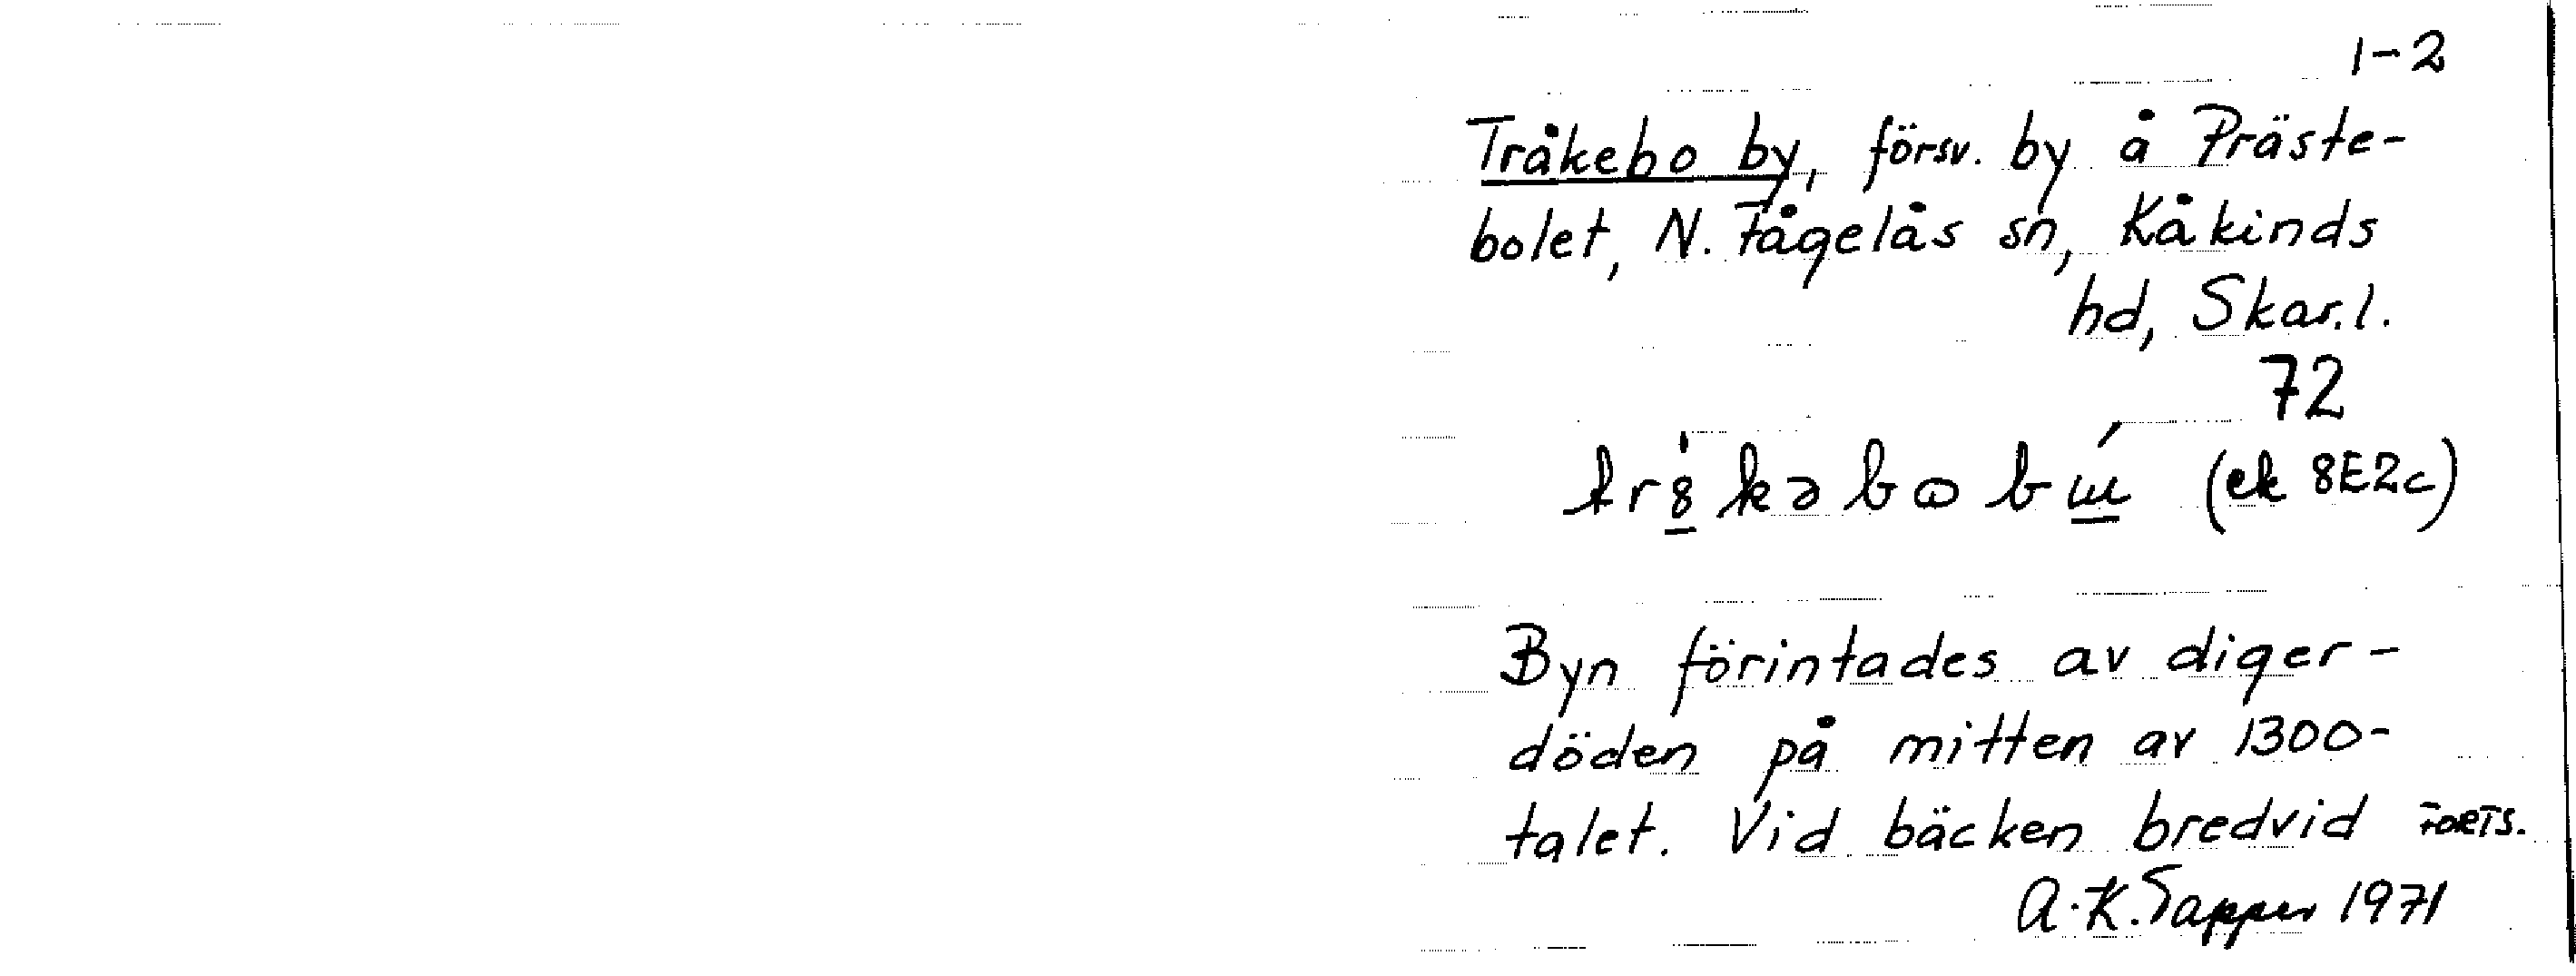 1-2
Tråkebo by, försv. by å Präste-
bolet, N. Fågelås sn, Kåkinds
hd, Skar.l.
72
(ek 8E2c)
Byn förintades av diger-
döden på mitten av 1300-
talet. Vid bäcken bredvid FORTS.
A.K. Sapper 1971